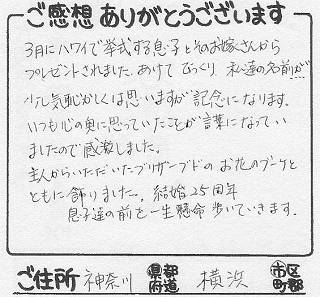 ご感想 ありがとうございます
3月にハワイで挙式する息子とそのお嫁さんから
プレゼントされました。あけて びっくり 私達の名前が
少し気恥かしくは思いますが記念になります。
いつも心の奥に思っていたことが言葉になってい
ましたので感激しました。
主人からいただいたブリザーブドの お花のブーケと
ともに 飾りました。結婚25周年
息子達の前を一生懸命 歩いていきます。
ご住所 神奈川 都道府県 横浜 市区町郡